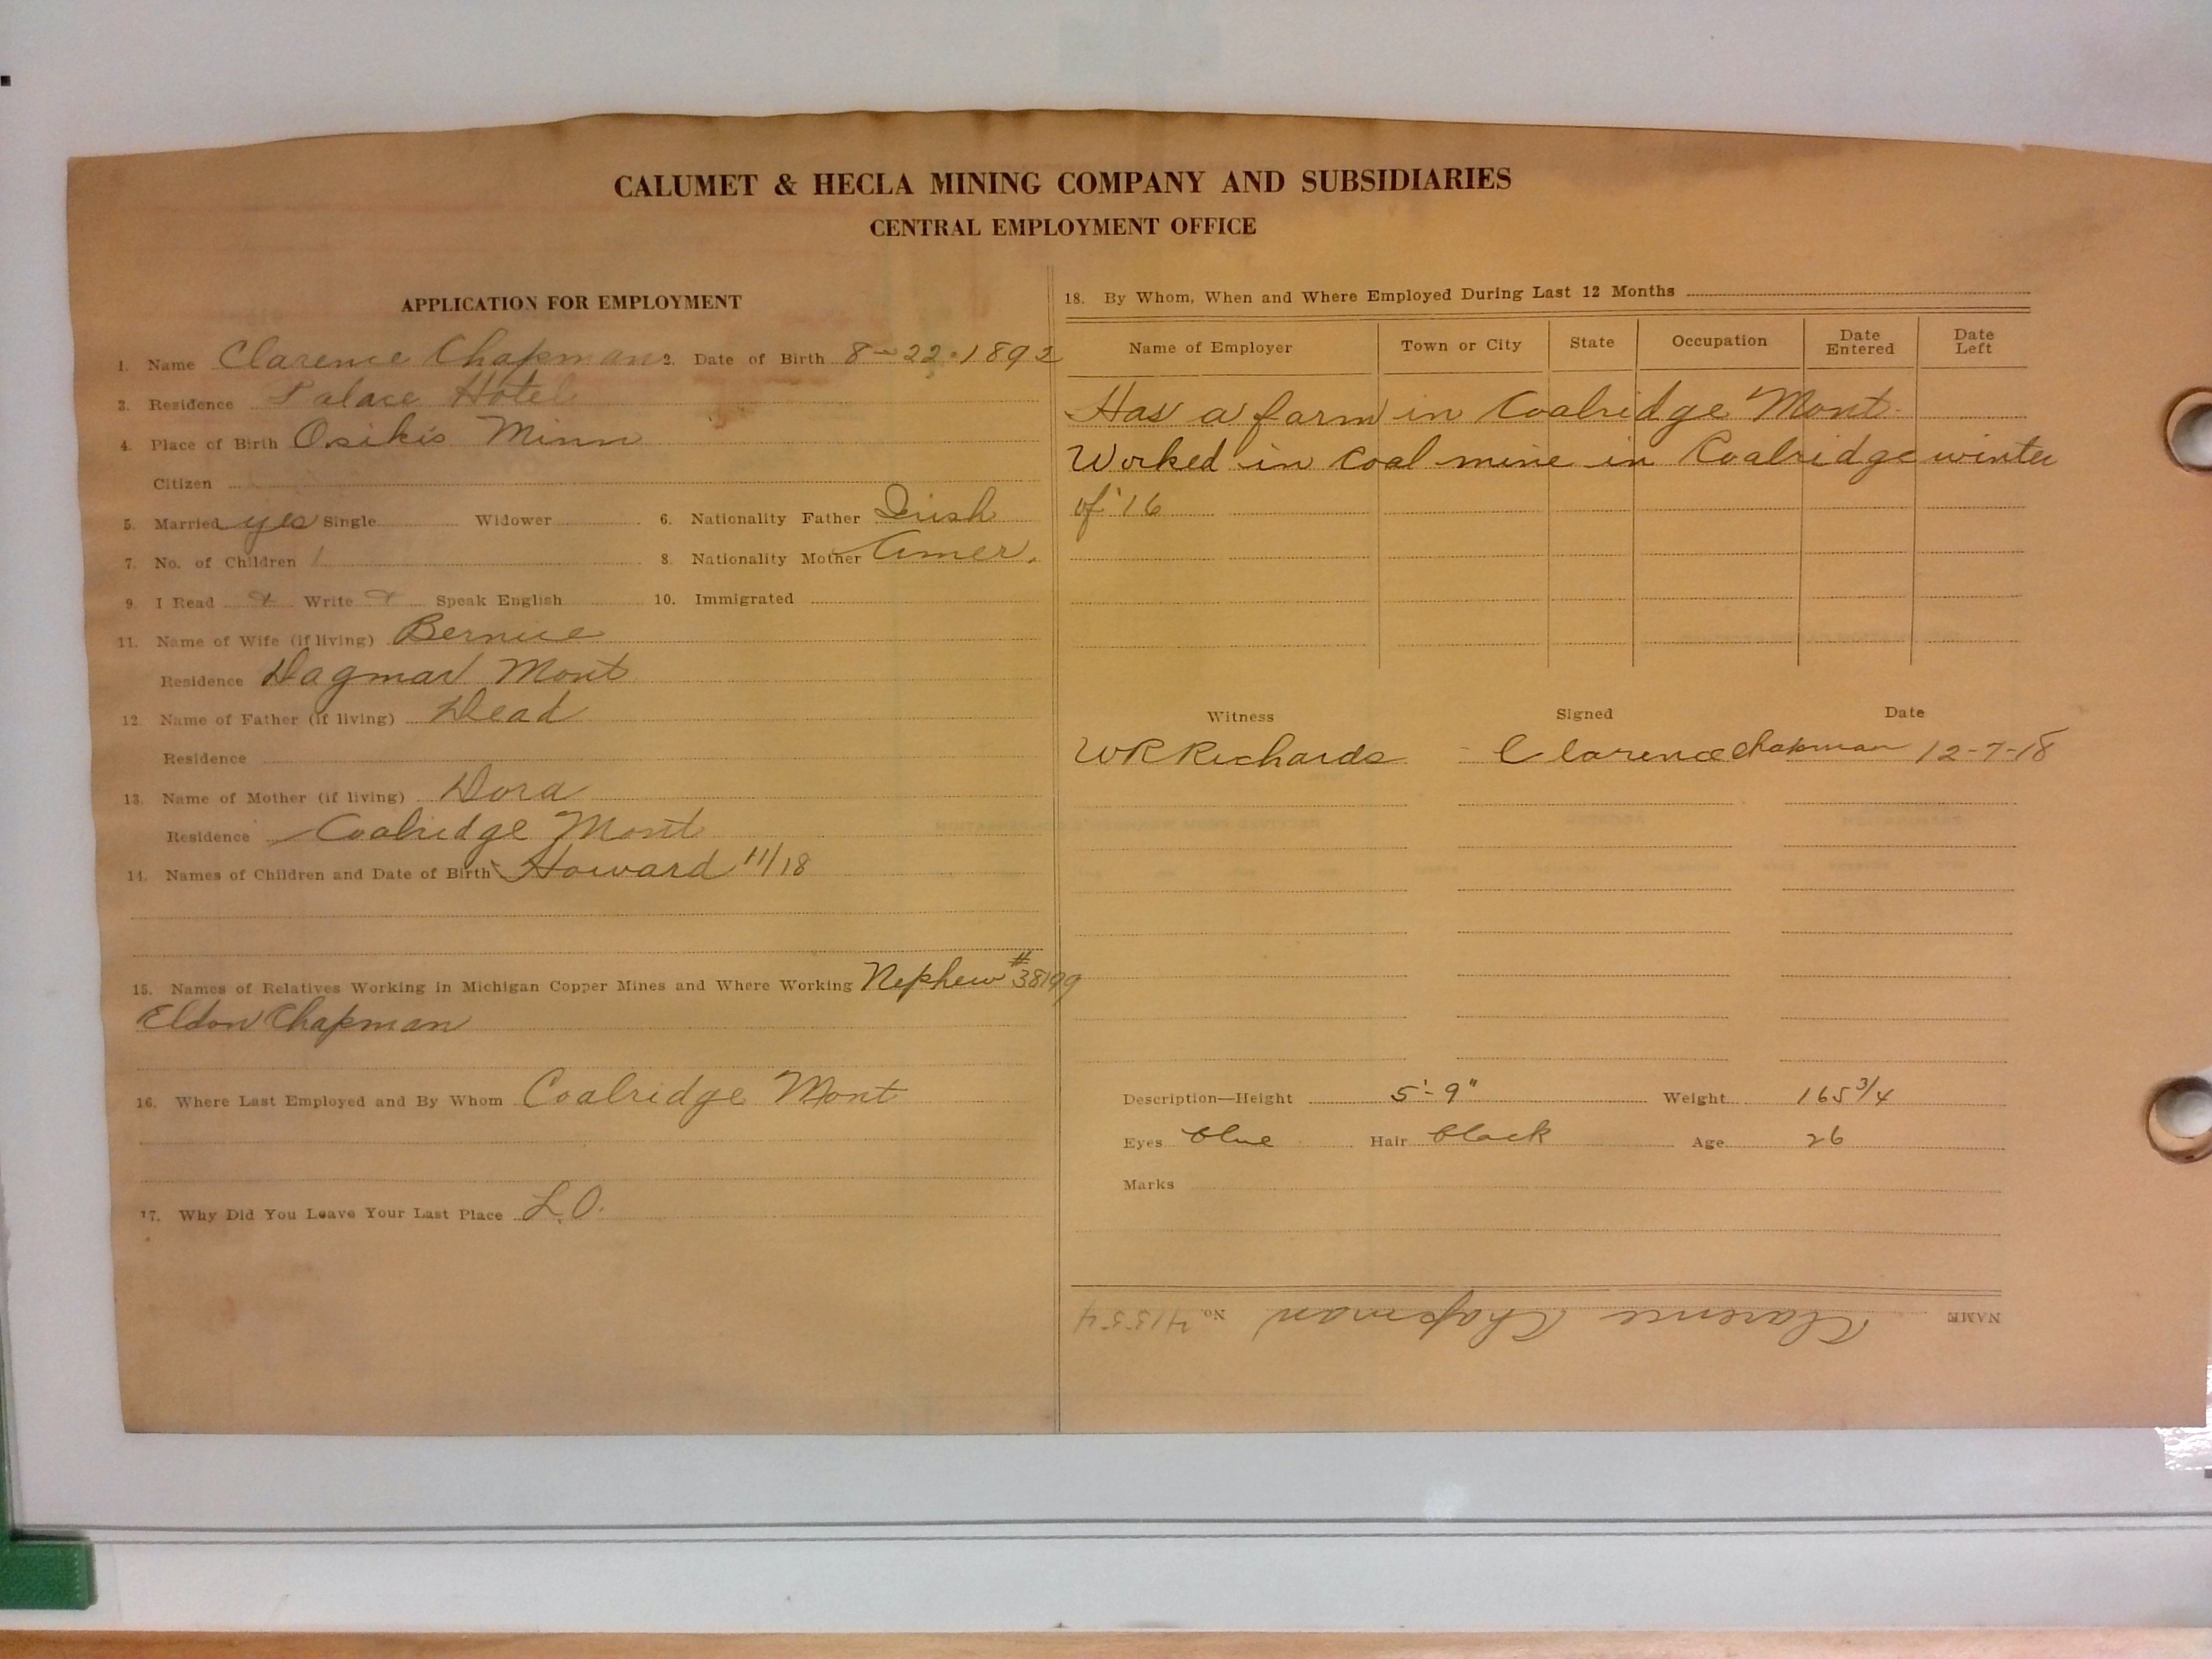 CALUMET & HECLA MINING COMPANY AND SUBSIDIARIES
CENTRAL EMPLOYMENT OFFICE
APPLICATION FOR EMPLOYMENT
1. Name Clarence Chapman 2. Date of Birth 8-22-1892
3. Residence Palace Hotel
4. Place of Birth Osikis Minn
Citizen
5. Married yes Single Widower 6. Nationality Father Irish
7. No. of Children 1 8. Nationality Mother Amer.
9. I Read Write Speak English 10. Immigrated
11. Name of Wife (if living) Bernice
Residence Dagmar Mont
12. Name of Father (if living) Dead
Residence
13. Name of Mother (if living) Dora
Residence Coalridge Mont
14. Names of Children and Date of Birth Howard 11/18
15. Names of Relatives Working in Michigan Copper Mines and Where Working Nephew #38199
Eldon Chapman
16. Where Last Employed and By Whom Coalridge Mont
17. Why Did You Leave Your Last Place L.O.
18. By Whom, When and Where Employed During Last 12 Months
Name of Employer Town or City State Occupation Date Entered Date Left
Has a farm in Coalridge Mont.
Worked in coal mine in Coalridge winter
of '16
Witness Signed Date
WR Richards Clarence Chapman 12-7-18
Description—Height 5'-9" Weight 165 3/4
Eyes blue Hair black Age 26
Marks
NAME Clarence Chapman No. 41554